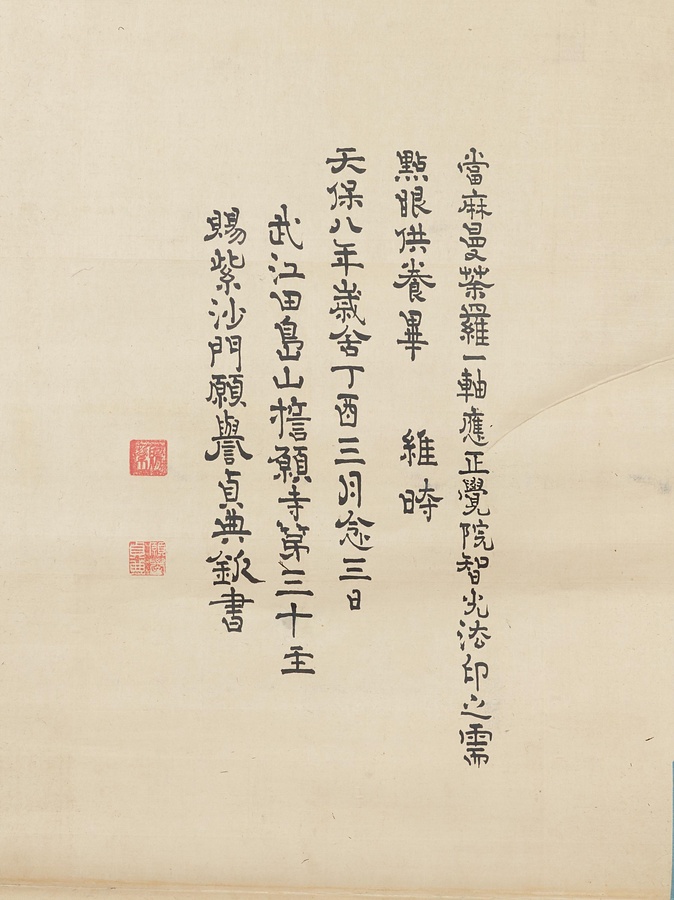 當麻曼荼羅一軸應正覺院智光法印之需
點眼供養畢　維時
天保八年歲舍丁酉三月念三日
武江田島山誓願寺第三十主
賜紫沙門願譽貞典欽書
願譽貞典